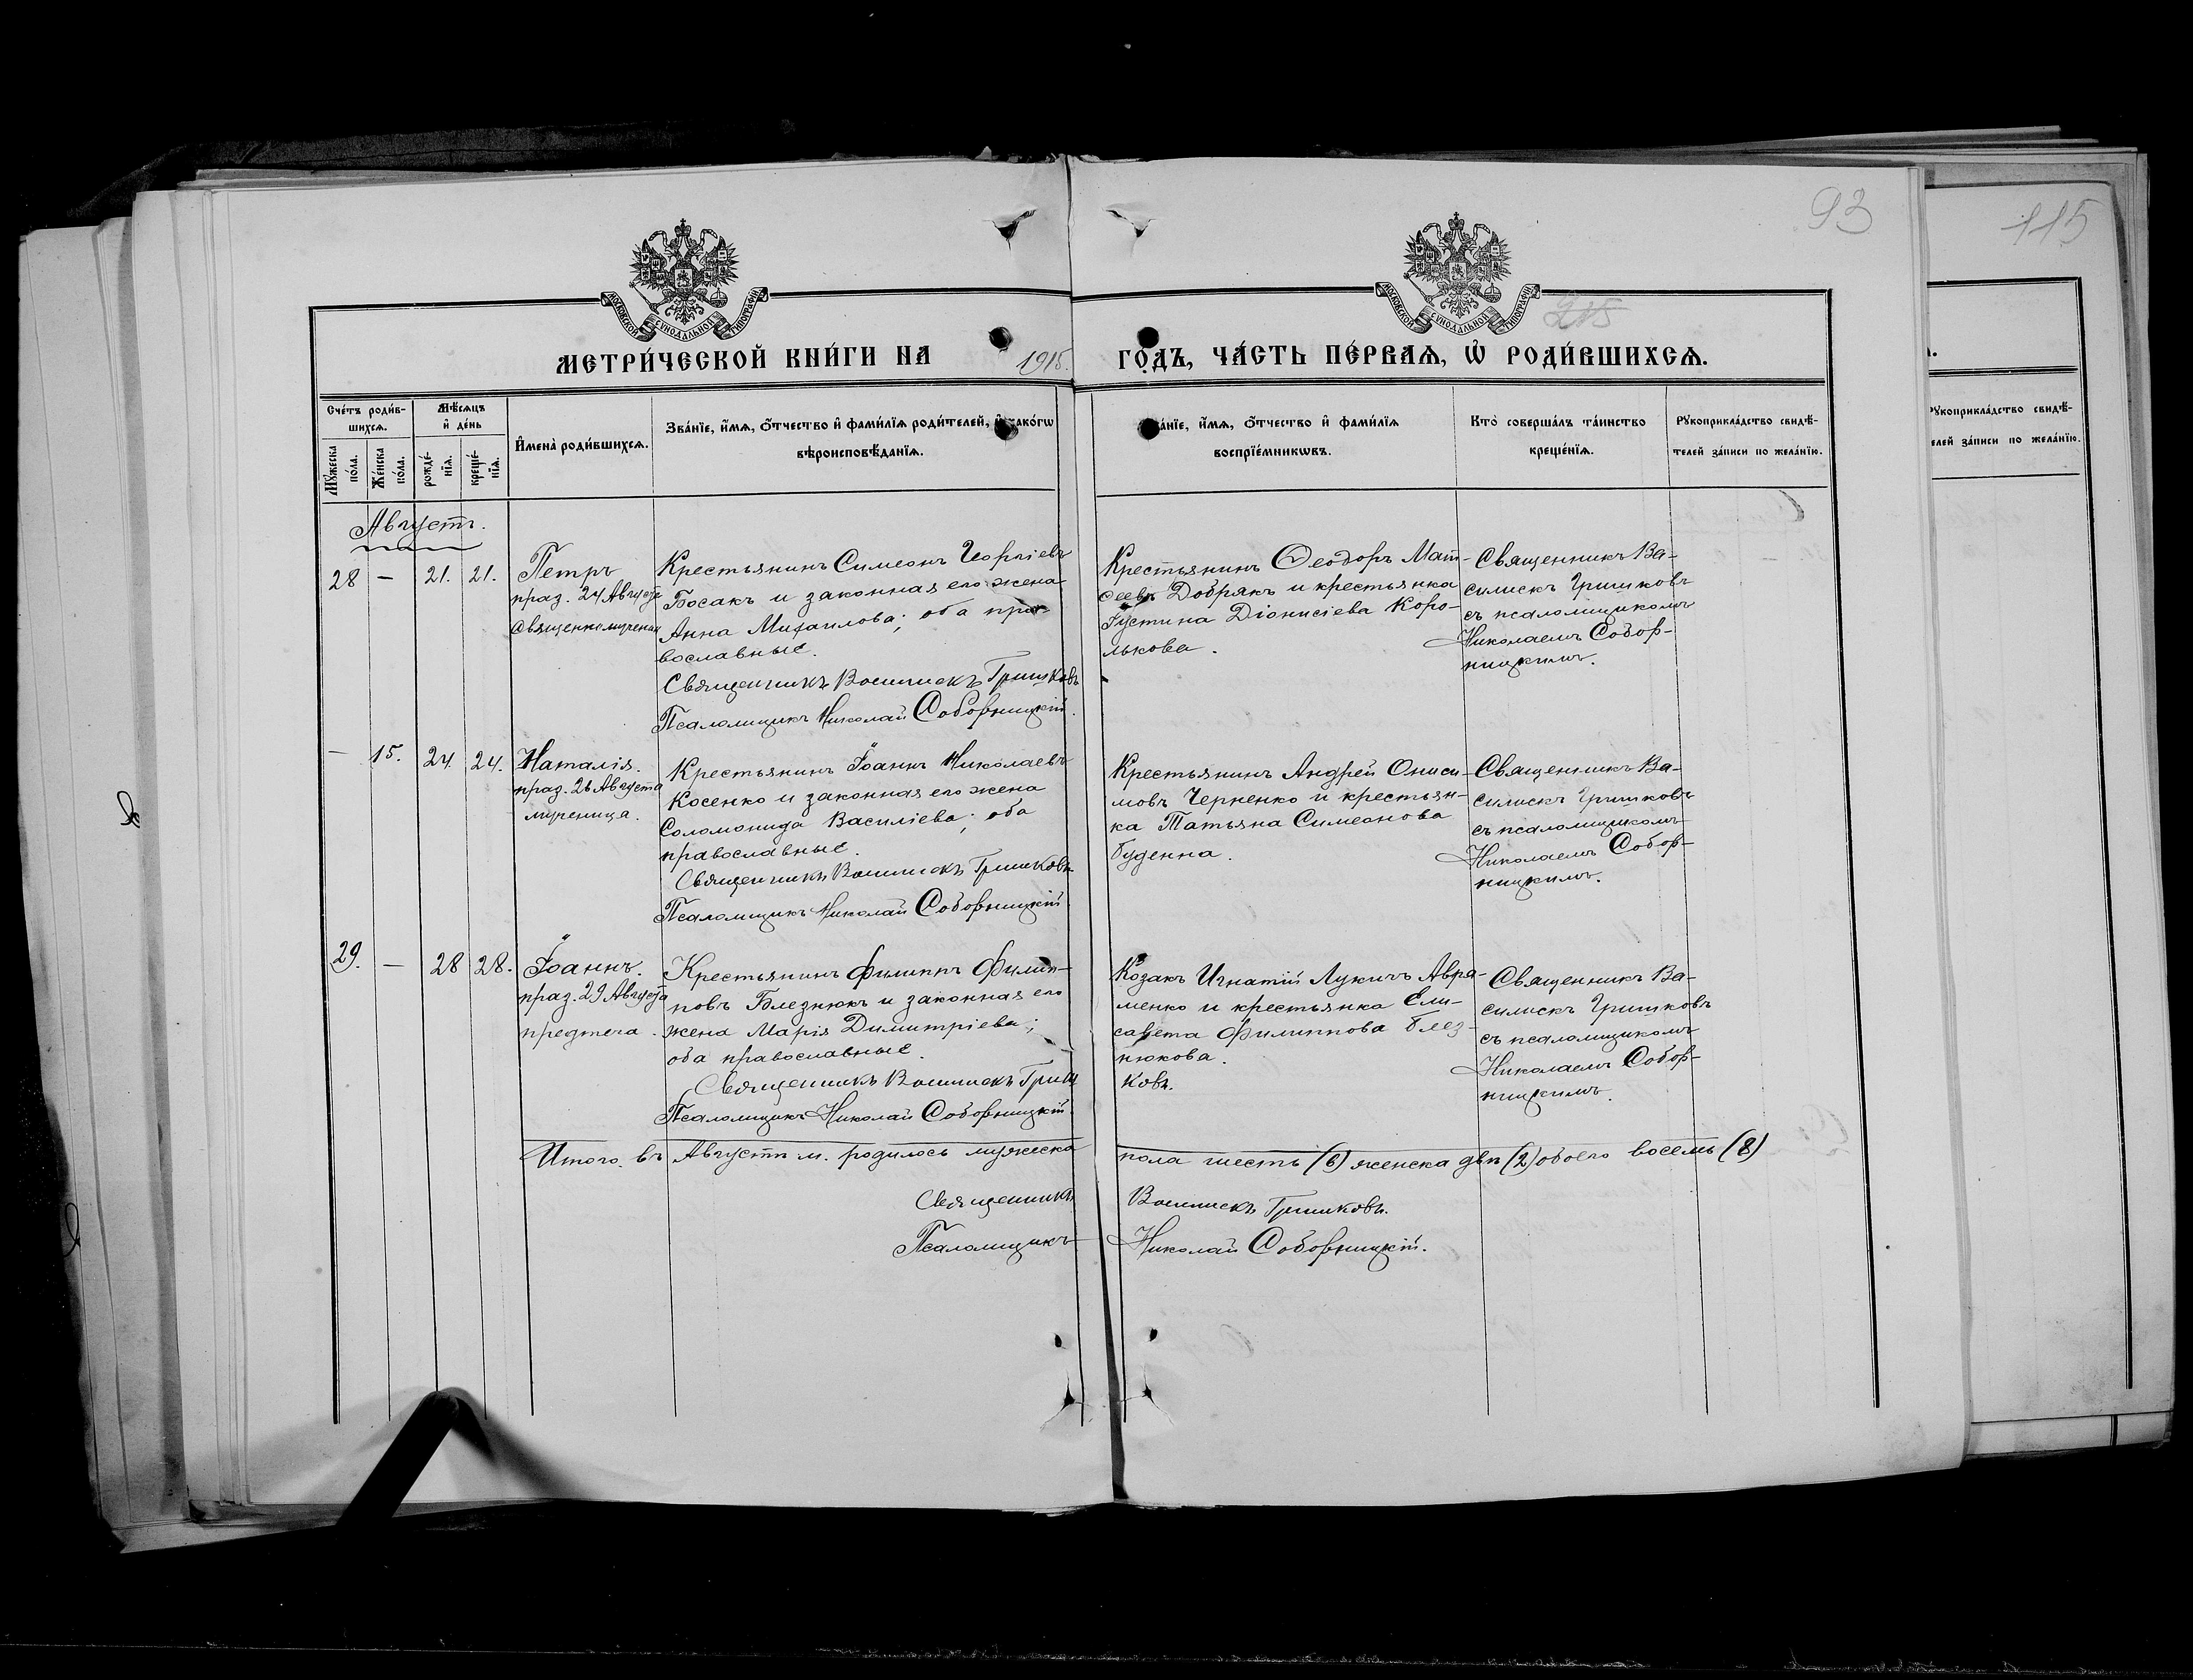 93
115
215
МОСКОВСКОЙ СѴНОДАЛЬНОЙ ТИПОГРАФІИ
МОСКОВСКОЙ СѴНОДАЛЬНОЙ ТИПОГРАФІИ
МЕТРИ́ЧЕСКОЙ КНИ́ГИ НА 1915. ГО́ДЪ, ЧА́СТЬ ПЕ́РВАѦ, Ѡ҆ РОДИ́ВШИХСѦ.
Сче́тъ роди́в-
шихсѧ.
Мꙋ́жеска
по́ла.
Же́нска
по́ла.
Мѣ́сѧцъ
и҆ де́нь
рожде́-
нїѧ.
креще́-
нїѧ.
И҆мена̀ роди́вшихсѧ.
Зва́нїе, и҆́мѧ, о҆́тчество и҆ фами́лїѧ роди́телей, и҆ како́гѡ
вѣроисповѣ́данїѧ.
Зва́нїе, и҆́мѧ, о҆́тчество и҆ фами́лїѧ
воспрїе́мникѡвъ.
Кто̀ соверша́лъ та́инство
креще́нїѧ.
Рꙋкоприкла́дство свидѣ́-
телей за́писи по жела́нїю.
Рꙋкоприкла́дство свидѣ́-
телей за́писи по жела́нїю.
Августъ.
28 — 21. 21.
Петръ
праз. 24 Августа
Священномученик
Крестьянинъ Симеонъ Георгіевъ
Босакъ и законная его жена
Анна Михаилова; оба пра-
вославные.
Священникъ Василискъ Гришковъ
Псаломщикъ Николай Соборницкій.
Крестьянинъ Ѳеодоръ Мат-
ѳеевъ Добрякъ и крестьянка
Іустина Діонисіева Коро-
лькова.
Священникъ Ва-
силискъ Гришковъ
съ псаломщикомъ
Николаемъ Собор-
ницкимъ.
— 15. 24 24.
Наталія.
праз. 26 Августа
мученица.
Крестьянинъ Іоаннъ Николаевъ
Косенко и законная его жена
Соломонида Василіева; оба
православные.
Священникъ Василискъ Гришковъ
Псаломщикъ Николай Соборницкій
Крестьянинъ Андрей Ониси-
мовъ Черненко и крестьян-
ка Татьяна Симеонова
буденна.
Священникъ Ва-
силискъ Гришковъ
съ псаломщикомъ
Николаемъ Собор-
ницкимъ.
29. — 28 28.
Іоаннъ.
праз. 29 Августа
предтеча.
Крестьянинъ Филиппъ Филип-
повъ Блезнюкъ и законная его
жена Марія Димитріева;
оба православные.
Священникъ Василискъ Гриш
ковъ.
Псаломщикъ Николай Соборницкій.
Козакъ Игнатій Лукичъ Авра-
менко и крестьянка Ели-
савета Филиппова Блез-
нюкова.
Священникъ Ва-
силискъ Гришковъ
съ псаломщикомъ
Николаемъ Собор-
ницкимъ.
Итого въ Августѣ м. родилось мужеска пола шесть (6) женска двѣ (2) обоего восемь (8)
Священникъ Василискъ Гришковъ.
Псаломщикъ Николай Соборницкій.